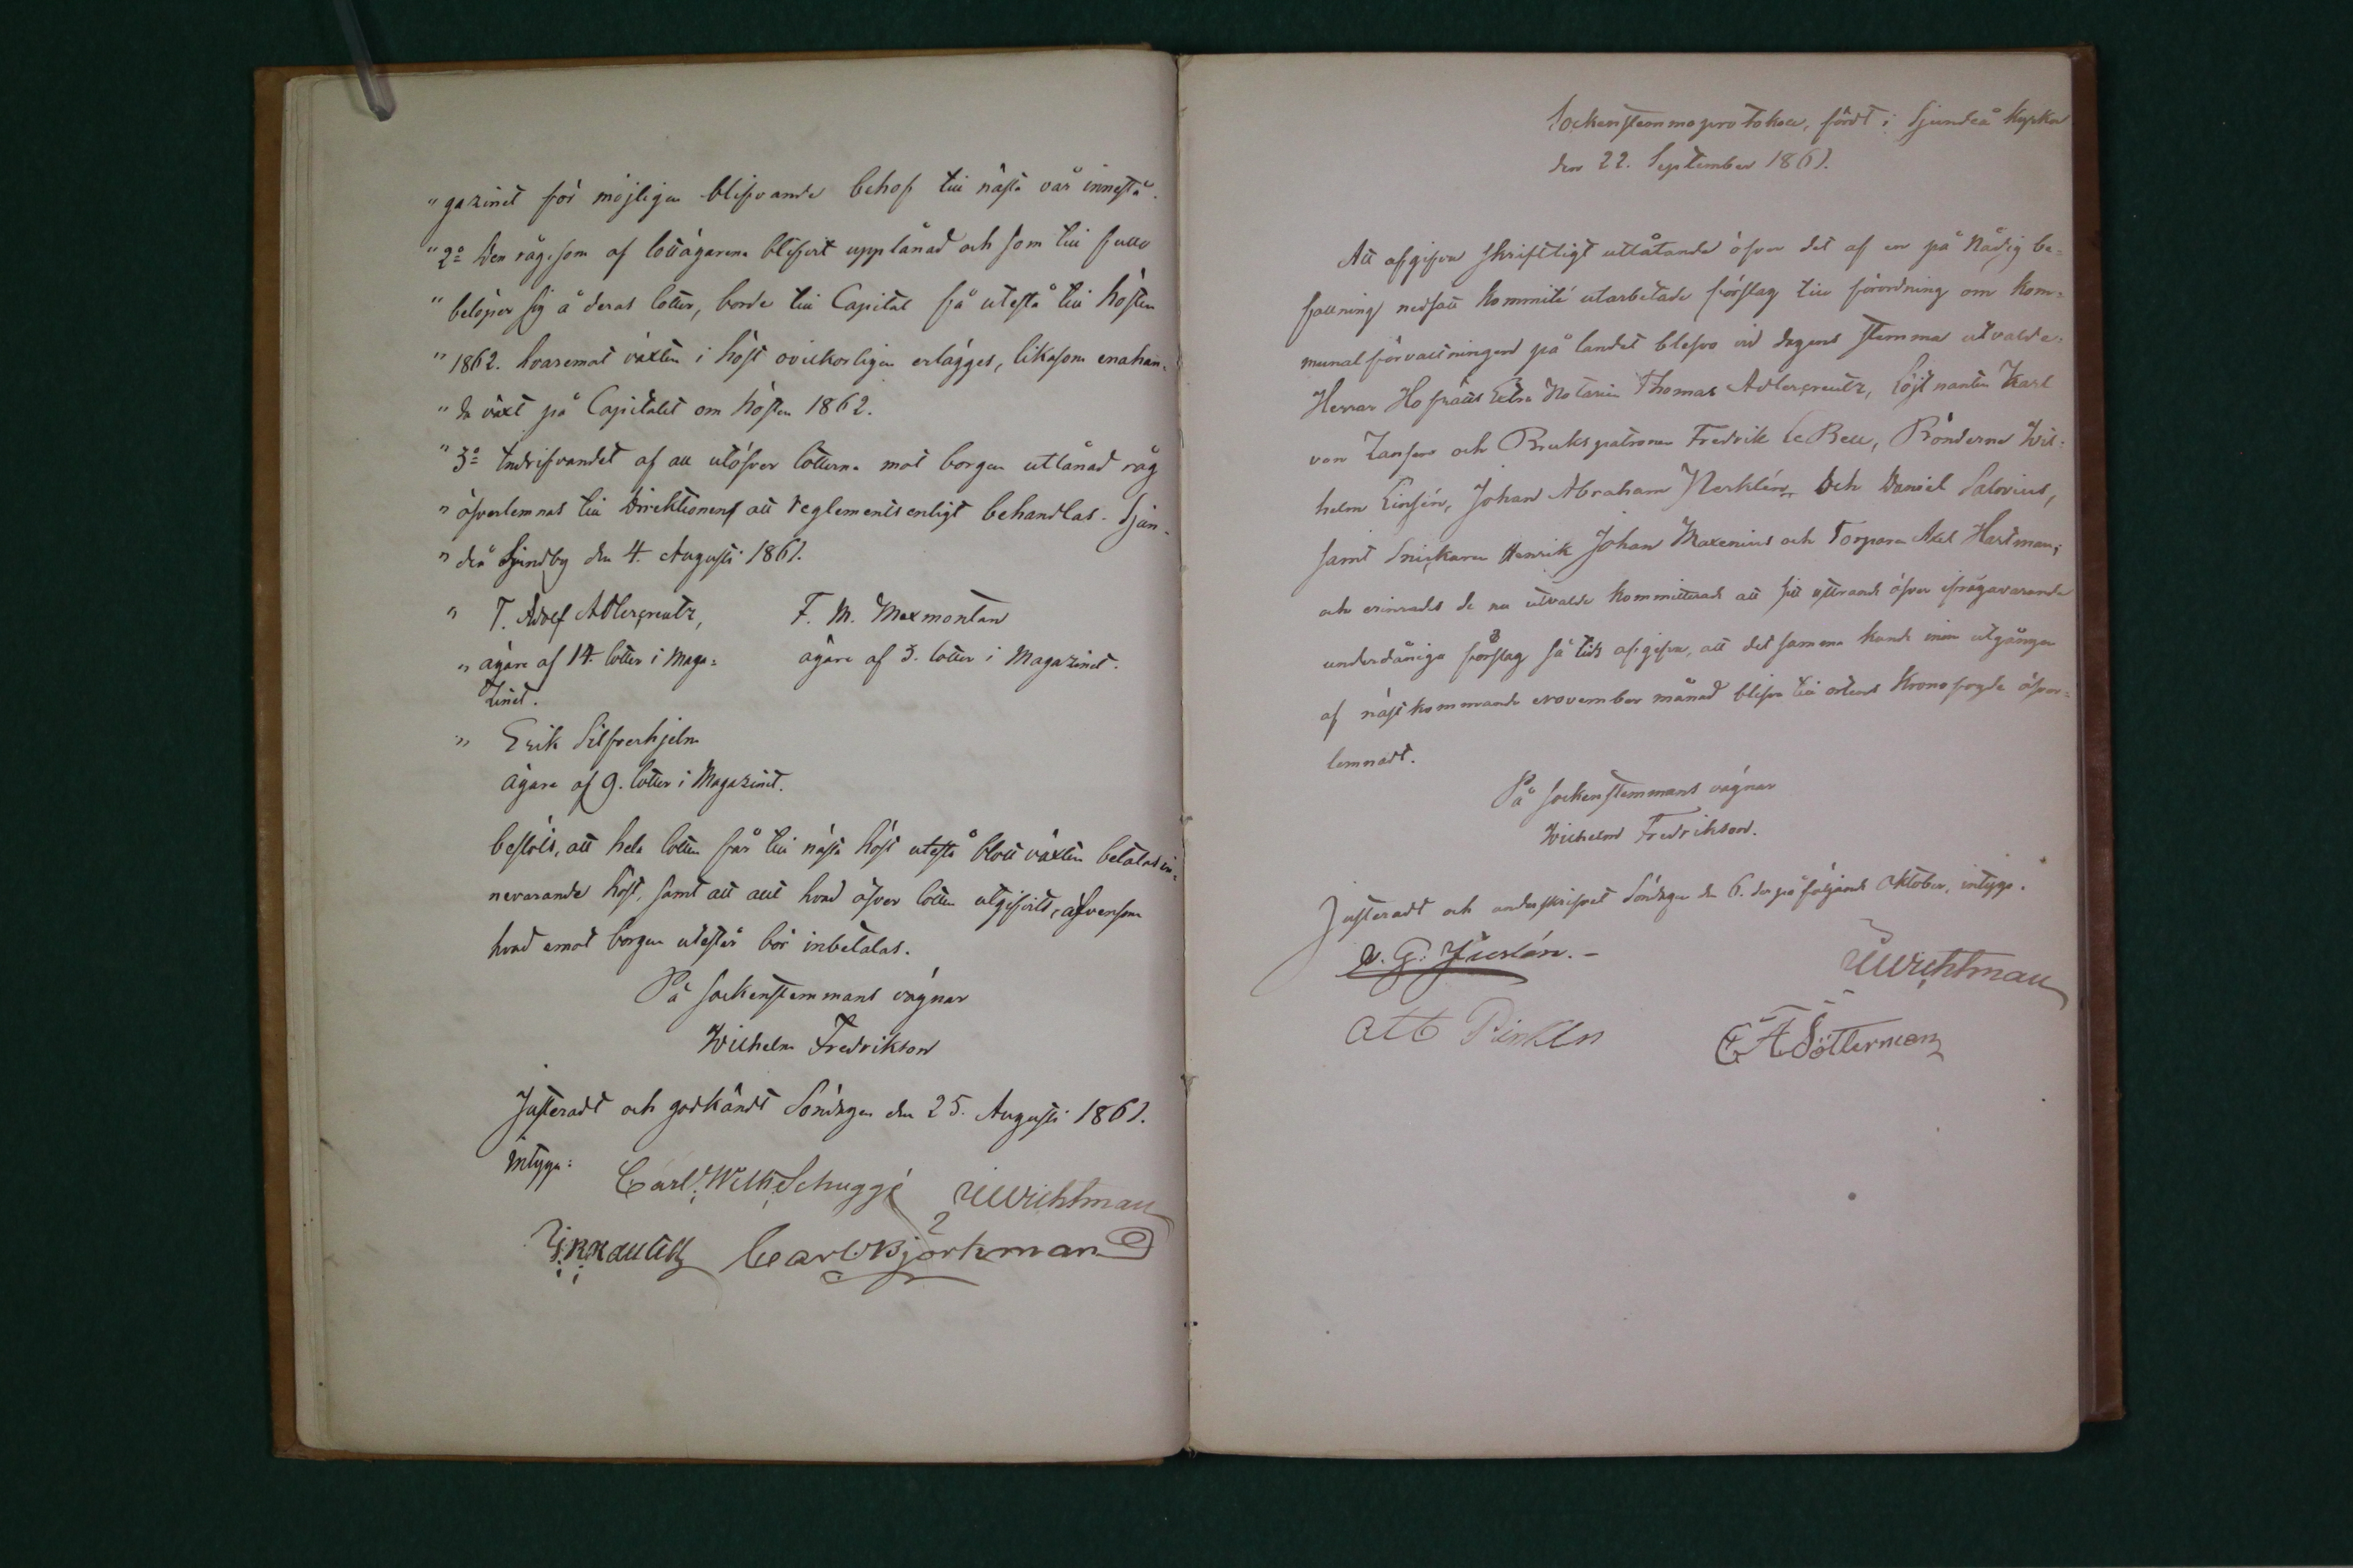 " gazinet för möjligen blifvande behof till nästa vår innestå.
" 2o Den råg, som af lottägarena blifvit upplånad och som till fullo
" belöper sig å deras lotter, borde till Capital få utestå till hösten
" 1862. hvaremot växten i höst ovillkorligen erlägges, likasom enahan-
" da växt på Capitalet om hösten 1862.
" 3o Indrifvandet af all utöfver lotterna mot borgen utlånad råg
" öfverlemnas till Direktionens att reglementsenligt behandlas. Sjun-
" deå Sjundby den 4. Augusti 1861.
" T. Adolf Adlercreutz, F. M. Maxmontan
" ägare af 14. lotter i Maga= ägare af 3. lotter i Magazinet.
zinet.
" Erik Silfverhjelm
ägare af 9. lotter i Magazinet.
beslöts, att hela lotten får till nästa höst utestå blott växten betalas in=
nevarande höst, samt att allt hvad öfver lotten utgifvits, äfvensom
hvad emot borgen utestår bör inbetalas.
På sockenstemmans vägnar
Wilhelm Fredrikson
Justeradt och godkändt Söndagen den 25. Augusti 1861.
intyga:
Carl Wilh. Schuggé Wichtman
Carl Björkman
Sockenstemmoprotokoll, fördt i Sjundeå Kyrka
den 22. September 1861.
Att afgifva skriftligt utlåtande öfver det af en på Nådig be=
fallning nedsatt Kommité utarbetade förslag till förordning om kom=
munalförvaltningen på landet blefvo vid dagens stemma utvalde:
Herrar Hofrätts Extra Notarien Thomas Adlercreutz, Löjtnanten Karl
von Zansen och Bruks patronen Fredrik LeBell, Bönderne Wil-
helm Linsén, Johan Abraham Nerklén, Och Daniel Salovius,
samt Snickaren Henrik Johan Maxenius och Torparen Axel Hartman;
och erinrades de nu utvalde Kommitterade att sitt yttrande öfver ifrågavarande
underdåniga förslag så tids afgifva, att det samma kunde innan utgången
af nästkommande November månad blifva till ortens Kronofogde öfver=
lemnadt.
På sockenstemmans vägnar
Wilhelm Fredrikson.
Justeradt och underskrifvet Söndagen den 6. derpåföljande Oktober, intyga.
Wichtman
Sötterman